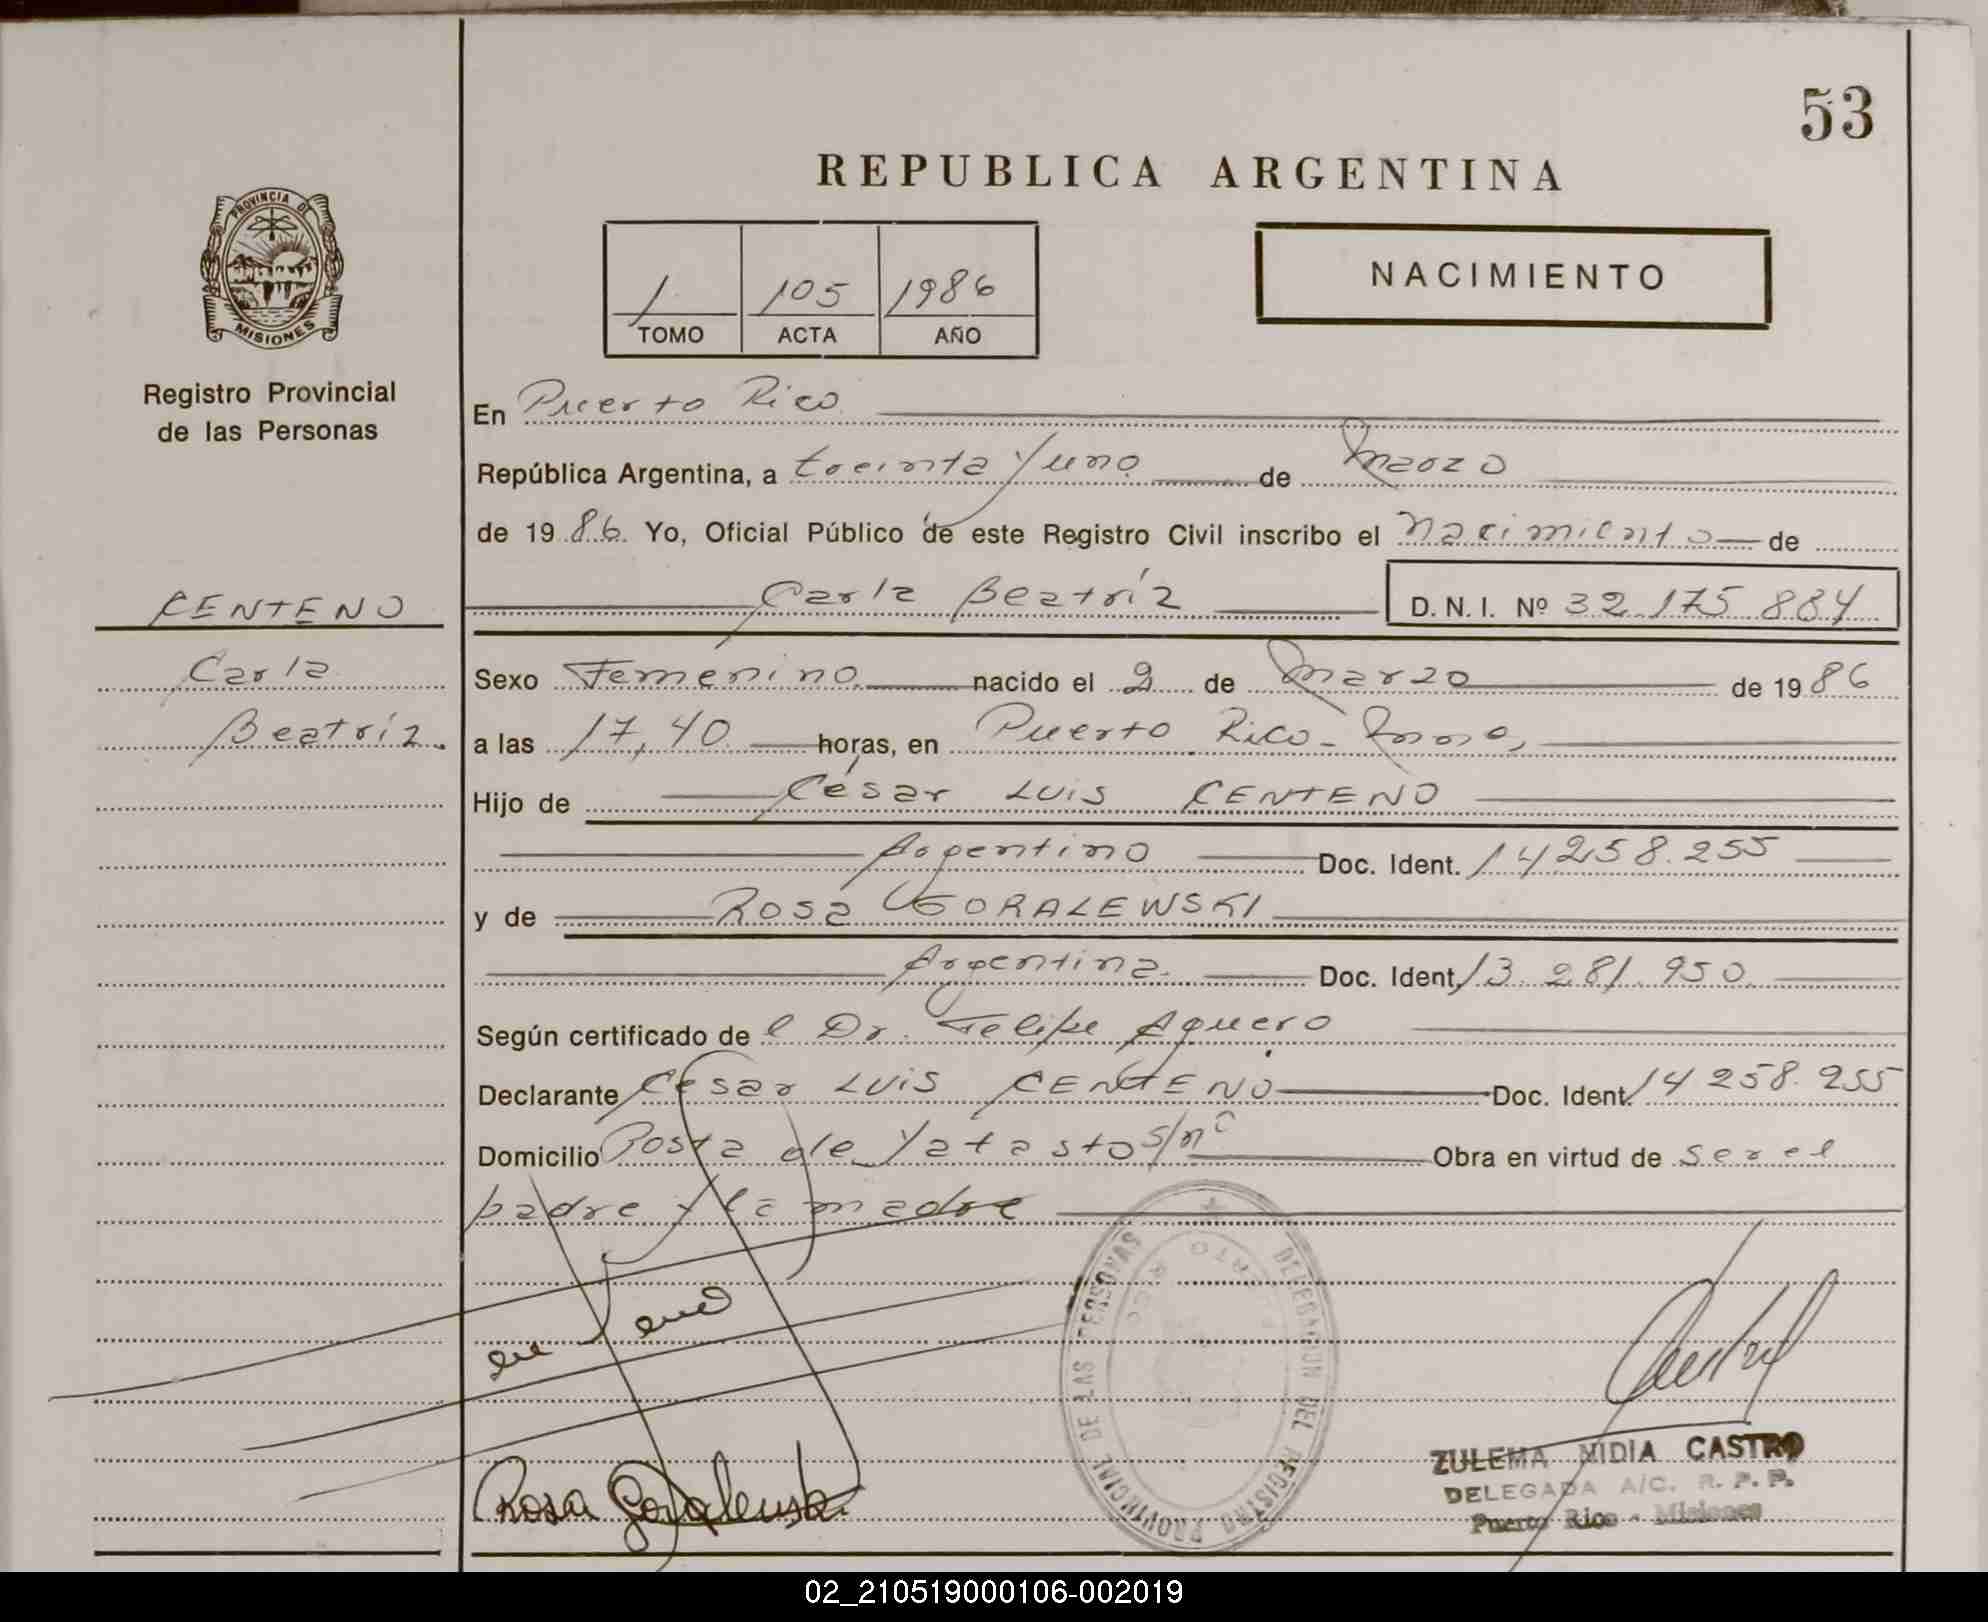 53
REPUBLICA ARGENTINA
PROVINCIA DE
MISIONES
Registro Provincial
de las Personas
1 105 1986
TOMO ACTA AÑO
NACIMIENTO
En Puerto Rico
República Argentina, a treinta y uno de Marzo
de 1986 Yo, Oficial Público de este Registro Civil inscribo el Nacimiento de
CENTENO
Carla Beatríz D. N. I. Nº 32.175.884
Carla
Beatríz.
Sexo Femenino nacido el 2 de Marzo de 1986
a las 17,40 horas, en Puerto Rico-
Hijo de César Luis CENTENO
Argentino Doc. Ident. 14.258.255
y de Rosa GORALEWSKI
Argentina Doc. Ident. 13.281.950
Según certificado de l Dr. Felipe Aguero
Declarante César Luis CENTENO Doc. Ident. 14.258.255
Domicilio Posta de Yatasto s/nº Obra en virtud de ser el
padre y la madre
DELEGACION DEL REGISTRO PROVINCIAL DE LAS PERSONAS
PUERTO RICO
Rosa Goralewski
ZULEMA NIDIA CASTRO
DELEGADA A/C. R. P. P.
Puerto Rico - Misiones
02_210519000106-002019